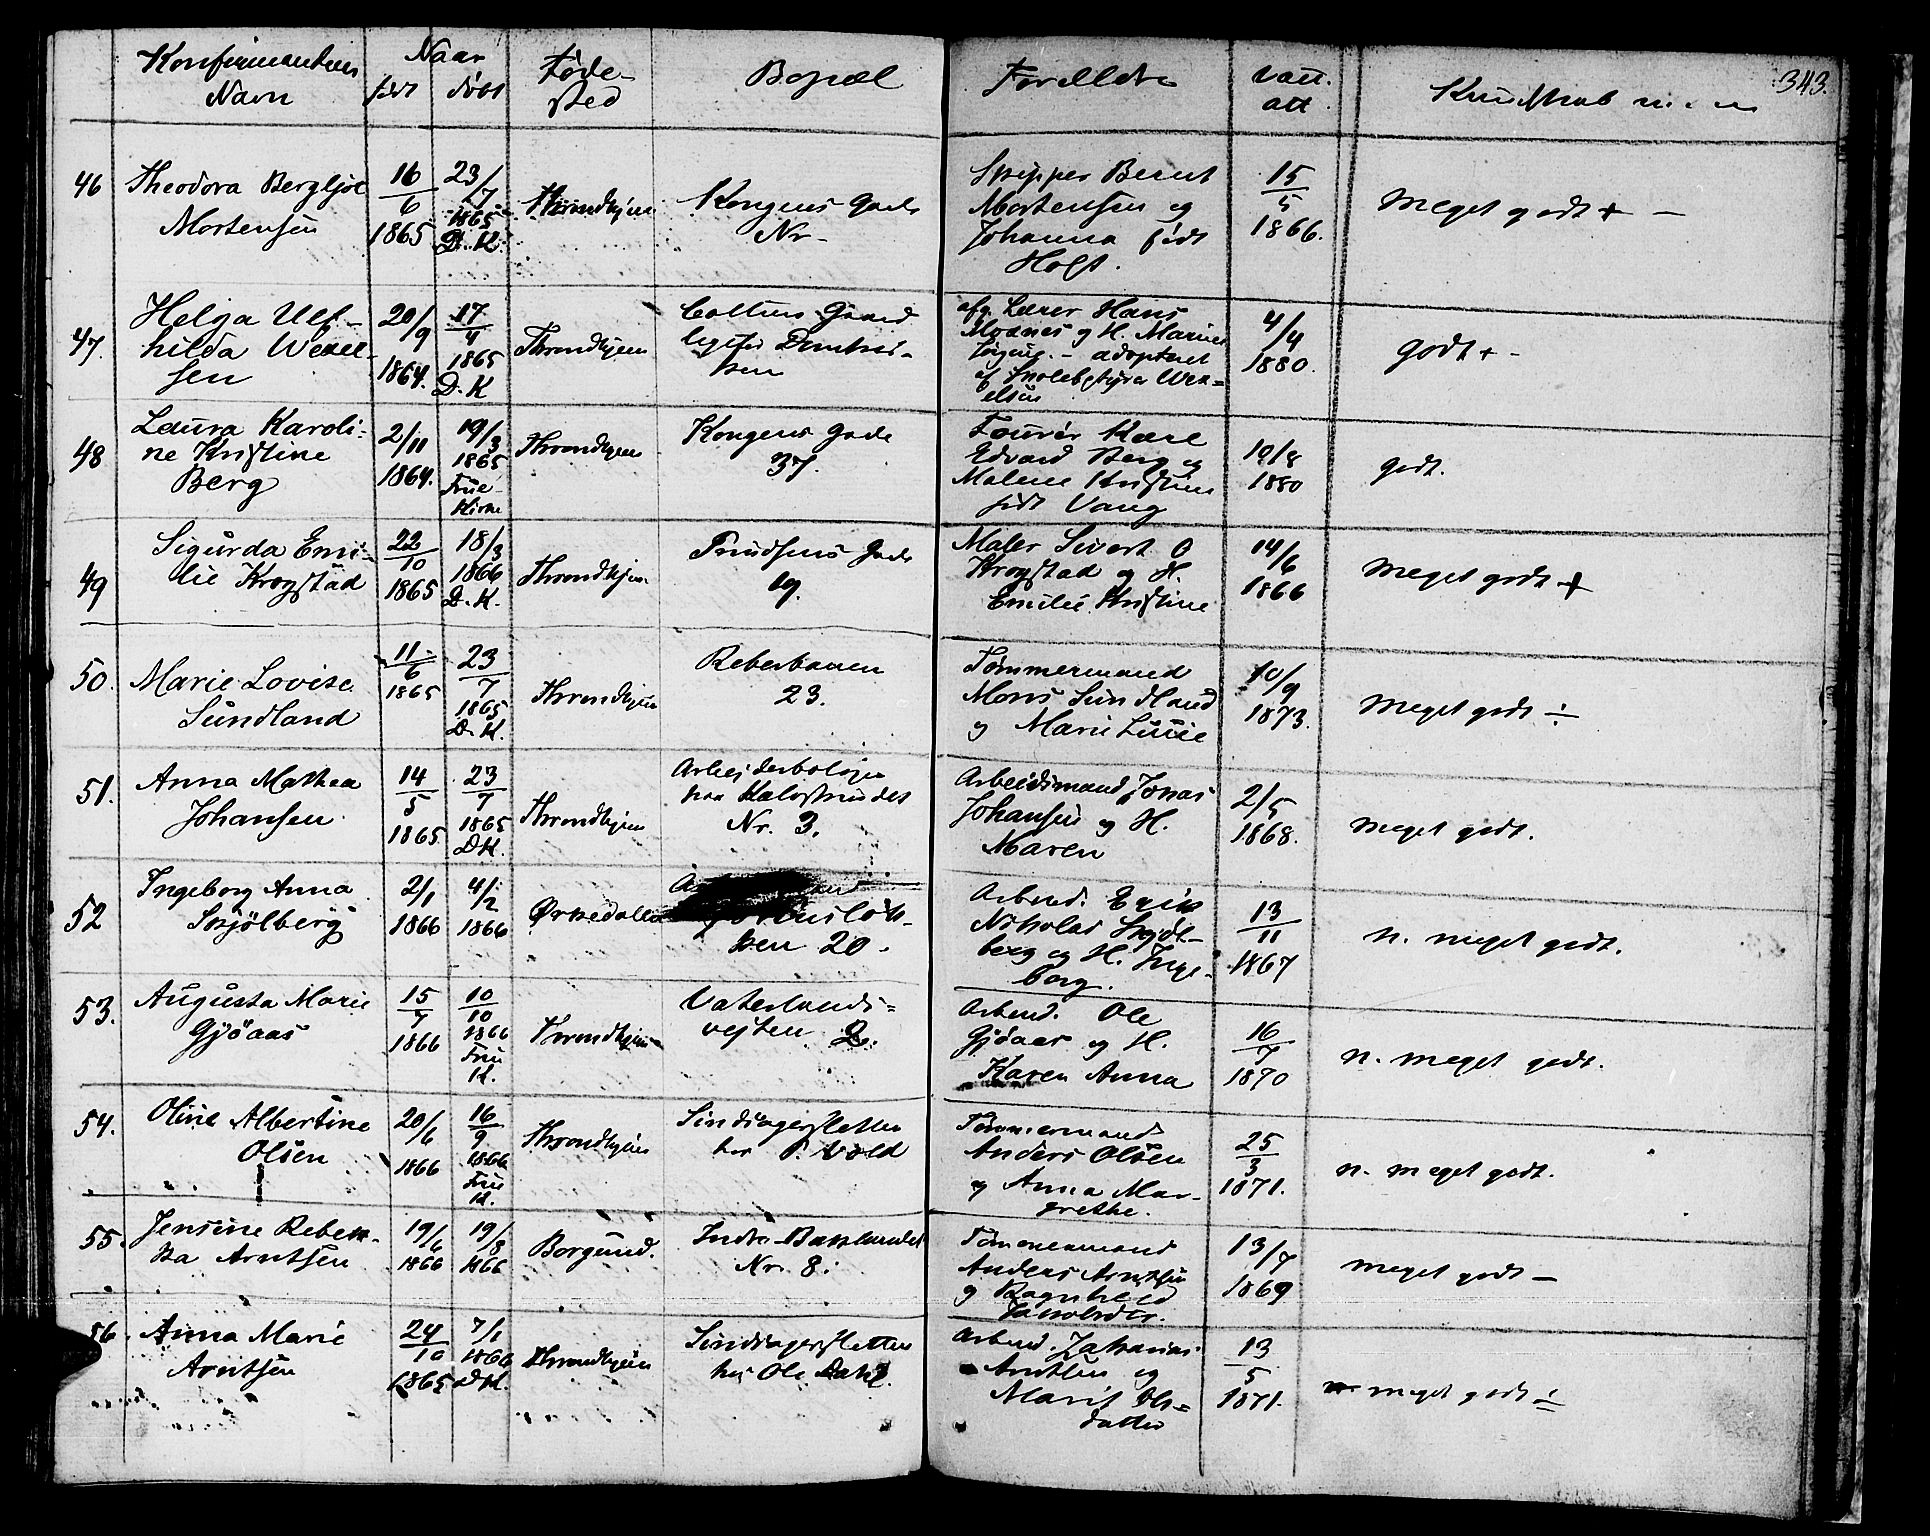 343.
Konfirmandens Navn
Naar
født døbt
Føde-
sted
Bopæl
Forældre
Vacc.
att
Kundskab m. m
46 Theodora Bergljot
Mortensen
16/6
1865
23/7
1865
D. K.
Throndhjem
Kongens Gade
Nr -
Skipper Bernt
Mortensen og
Johanna født
Holst.
15/5
1866.
Meget godt + -
47. Helga Ulf-
hilda Wexel-
sen
20/9
1864.
17/4
1865
D. K
Throndhjem
afg. Lærer Hans
Moxnes og H. Marie
- adopteret
af Skolebestyrer Wex-
elsen
4/4
1880.
godt + -
48 Laura Karoli-
ne Kristine
Berg
2/11
1864.
19/3
1865
Frue-
Kirke
Throndhjem
Kongens Gade
37.
Edvard Berg og
Malene Kristine
født Vang
10/8
1880
godt.
49 Sigurda Emi-
lie Krogstad
22/10
1865
18/3
1866
D. K.
Throndhjem
Gade
19.
Maler Sivert O
Krogstad og H.
Emilie Kristine
14/6
1866
Meget godt +
50. Marie Lovise
Sundland
11/6
1865
23/7
1865
D. K.
Throndhjem
Reberbanen
23.
Tømmermand
Mons Sundland
og Marie
10/9
1873.
Meget godt ÷
51. Anna Mathea
Johansen
14/5
1865
23/7
1865
DK.
Throndhjem
Arbejderboliger
Nr. 3.
Arbeidsmand Jonas
Johansen og H.
Maren
2/5
1868.
meget godt.
52 Ingeborg Anna
Skjölberg
2/1
1866
4/2
1866
Ørkedalen
20.
Arbmd. Erik
Nikolai Skjöl-
berg og H. Inge-
borg.
13/11
1867
n. meget godt.
53. Augusta Marie
Gjöaas
15/7
1866
10/10
1866
Frue
K.
Throndhjem
Vaterlands-
vejten 2.
Arbmd. Ole
Gjöaas og H.
Karen Anna
16/7
1870
n. meget godt.
54. Oline Albertine
Olsen
20/6
1866
16/9
1866
Frue
K.
Throndhjem
hos P. Vold
Tömmermand
Anders Olsen
og Anna Mar-
grethe.
25/3
1871.
n. meget godt.
55. Jensine Rebek-
ka Arntsen
19/6
1866
19/8
1866
Borgund.
Indre Baklandet
Nr. 8.
Tömmermand
Anders Arntsen
og Ragnhild
Jakobsdtr.
13/7
1869
meget godt -
56. Anna Marie
Arntsen
24/10
1865
7/1
1866
DK.
Throndhjem
hos Ole Dahl.
Arbmd. Zakarias
Arntsen og
Marit Ols-
datter
13/5
1871.
meget godt ÷